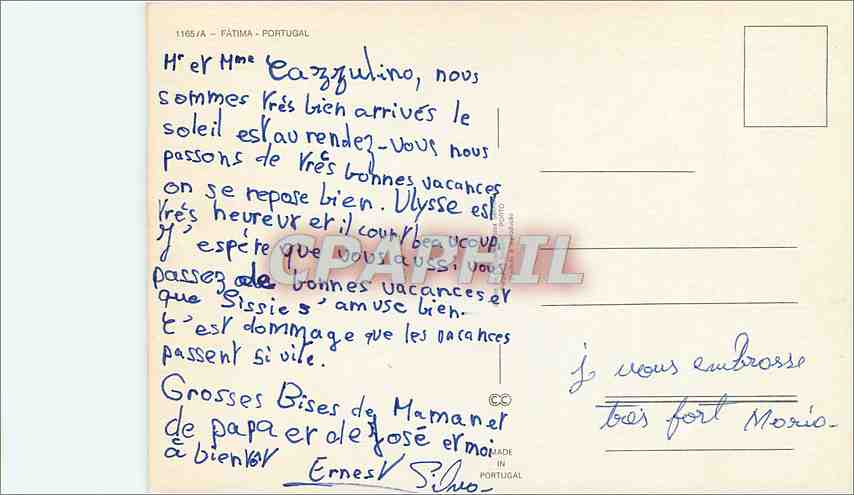 1165/A – FÁTIMA - PORTUGAL
Mr et Mme Cazzulino, nous
sommes trés bien arrivés le
soleil est au rendez-vous nous
passons de trés bonnes vacances
on se repose bien. Ulysse est
trés heureux et il court beaucoup,
J'espére que vous aussi vous
passez de bonnes vacances et
que Sissie s'amuse bien.
C'est dommage que les vacances
passent si vite.
Grosses Bises de Maman et
de papa et de José et moi
à bientot
Ernest Silva
CPARHIL
PORTO
CC
MADE
IN
PORTUGAL
je vous embrasse
très fort Maria